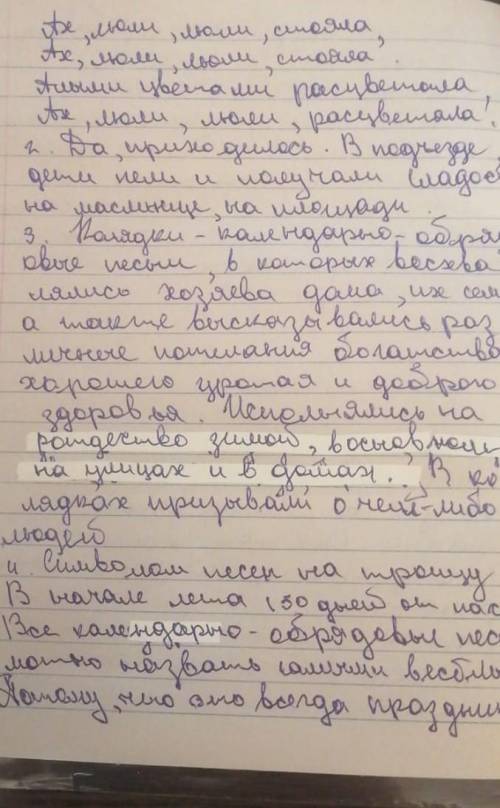 Ах, люли, люли, стояла,
Ах, люли, люли, стояла.
Алыми цветами расцветала,
Ах, люли, люли, расцветала!
2. Да, приходилось. В подъезде
дети пели и получали сладос
на масленице, на площади.
3. Колядки - календарно-обря
овые песни, в которых восхва
лялись хозяева дома, их сем
а также высказывались раз
личные пожелания богатства
хорошего урожая и доброго
здоровья. Исполнялись на
рождество зимой, в основном
на улицах и в домах. В ко
лядках призывали о чем-либо
людей
4. Символом песен на троицу
В начале лета (50 дней от пас
Все календарно-обрядовые пес
можно назвать самими весёлы
Потому, что это всегда праздни